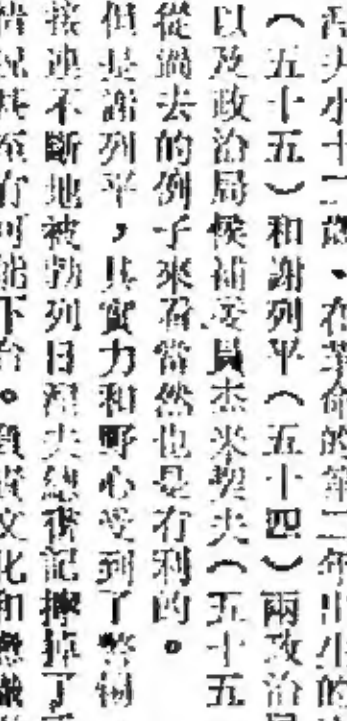 夫小十二歲、在革命的第二年出生的
（五十五）和謝列平（五十四）兩政治
以及政治局候補委員杰米契夫（五十五
從過去的例子來看，當然也是有利的。
但是謝列平，其實力和野心受到了警惕
接連不斷地被勃列日涅夫總書記擰掉了
情況甚至有可能下台。負責文化和